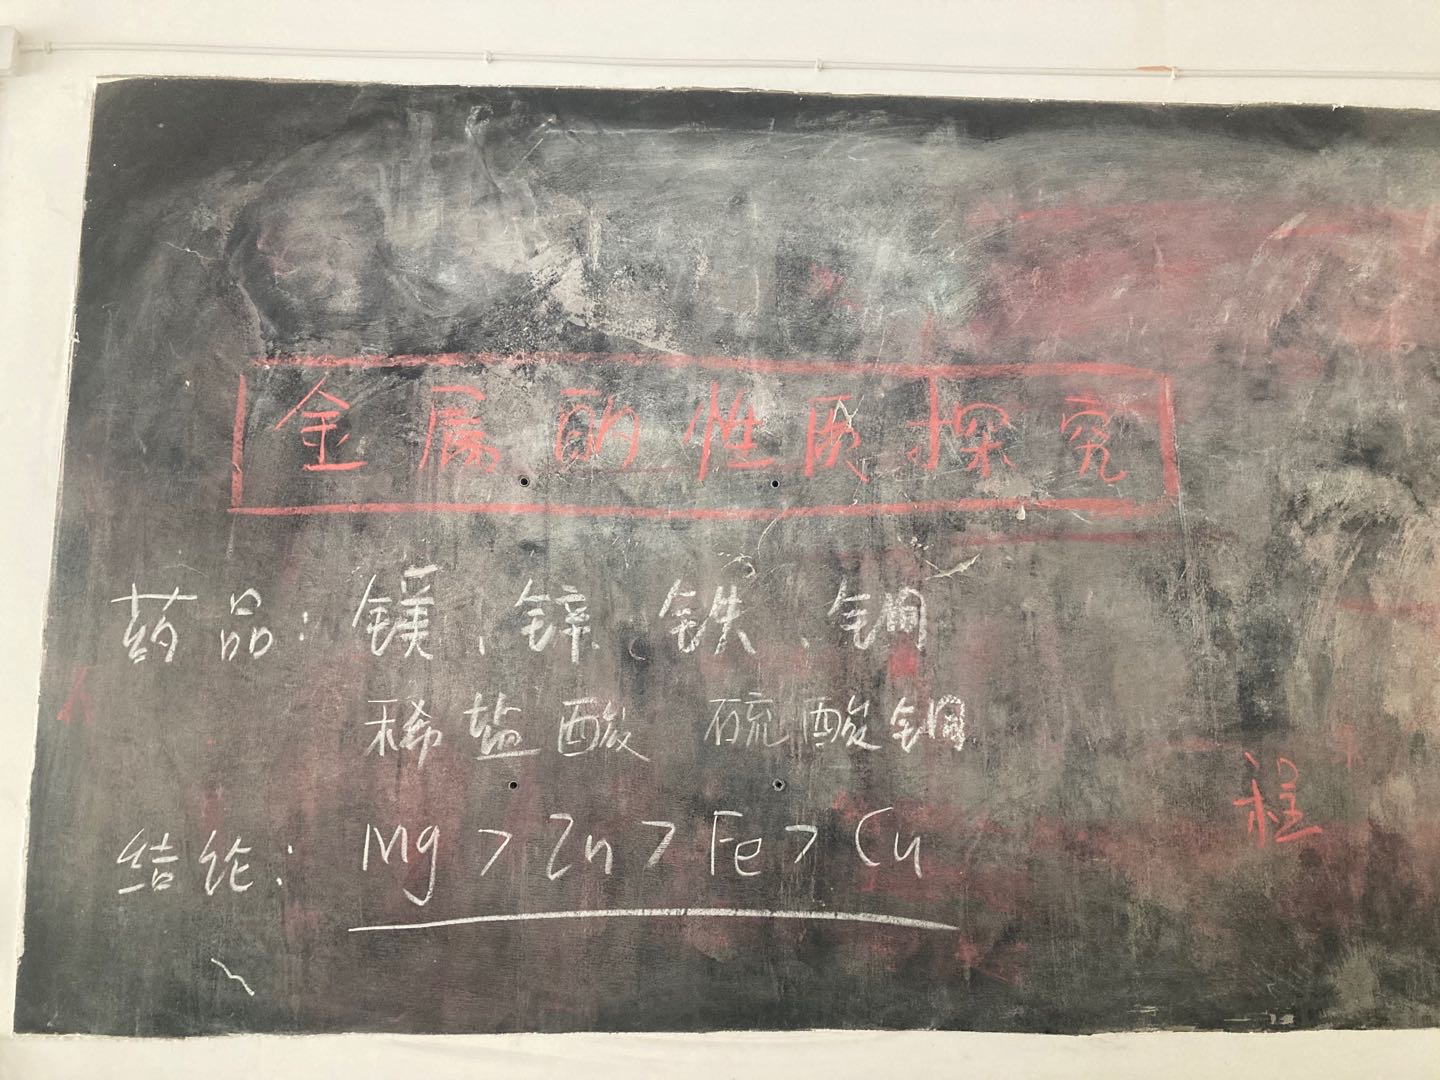 金属的性质探究
药品：镁、锌、铁、铜
稀盐酸 硫酸铜
结论：Mg > Zn > Fe > Cu